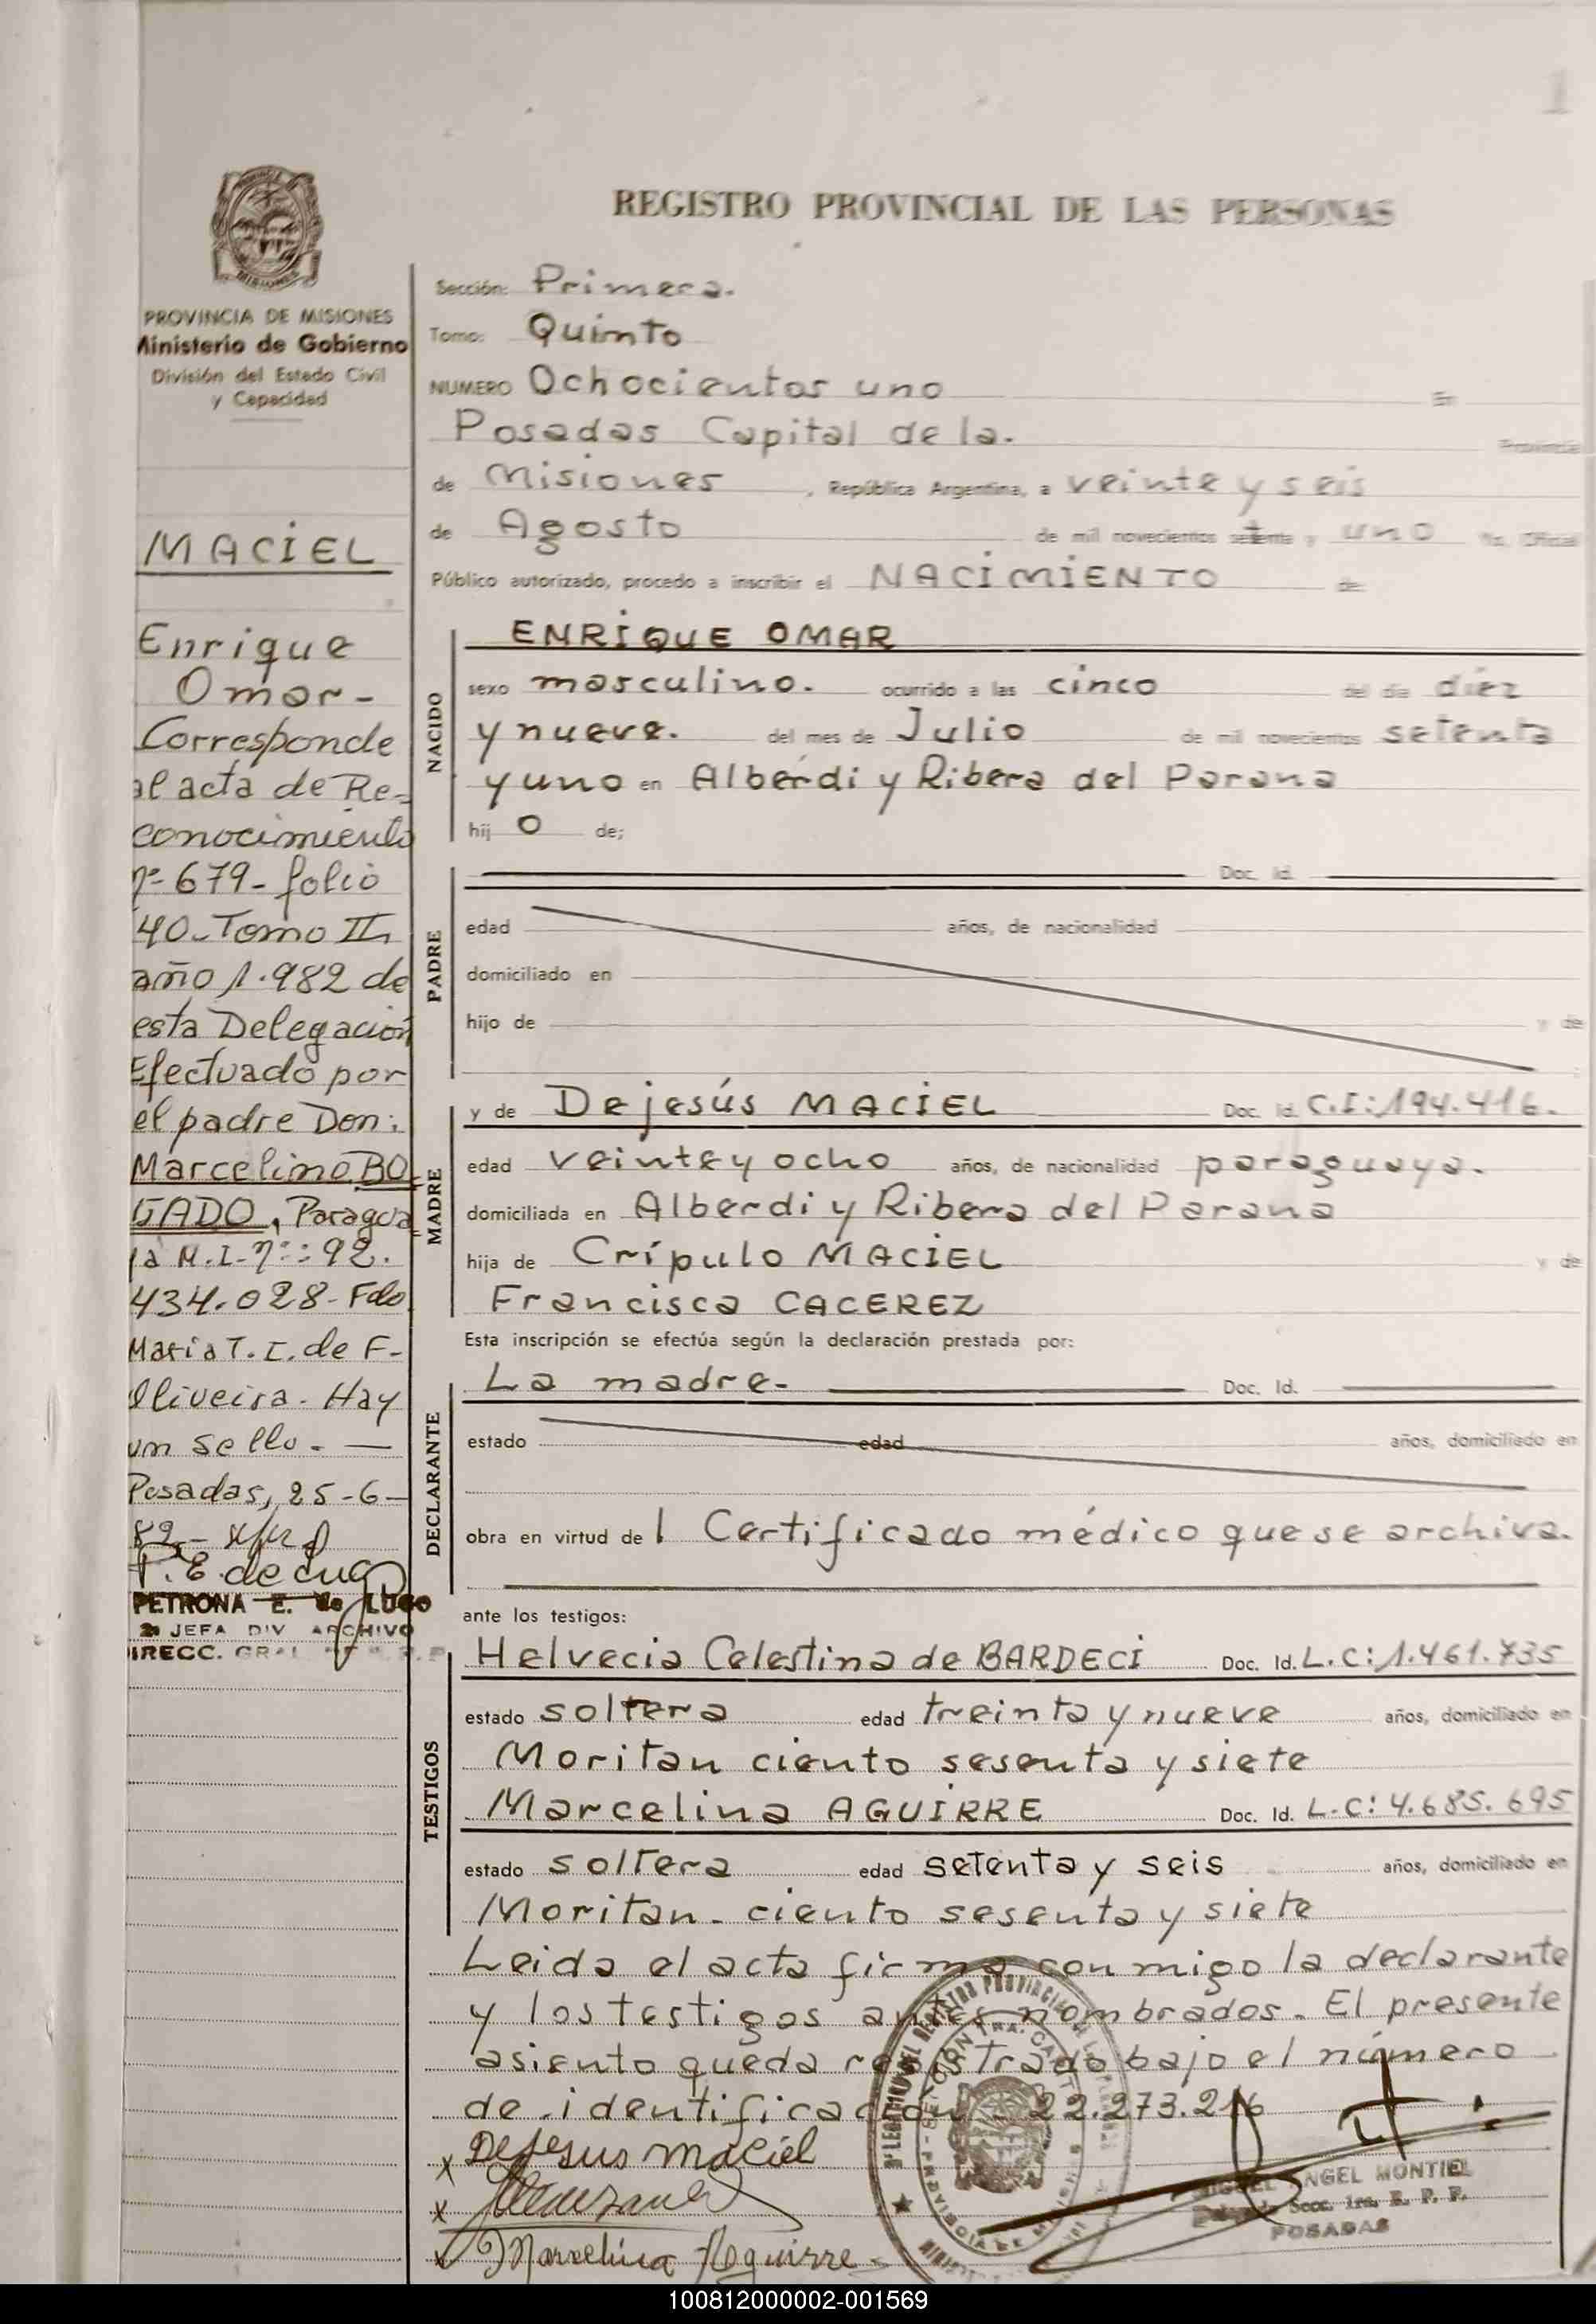 REGISTRO PROVINCIAL DE LAS PERSONAS
PROVINCIA DE MISIONES
Ministerio de Gobierno
División del Estado Civil
y Capacidad
MACIEL
Enrique
Omar-
Corresponde
al acta de Re-
conocimiento
nº 679- folio
40- Tomo II,
año 1.982 de
esta Delegación
Efectuado por
el padre Don:
Marcelino BO
GADO, Paragua
M.I. nº: 92.
434.028- Fdo
Maria T. I. de F-
Oliveira- Hay
un sello. —
Posadas, 25-6-
82-
P. E. de Lugo
PETRONA E. de LUGO
JEFA DIV ARCHIVO
DIRECC. GRAL
Sección: Primera.
Tomo: Quinto
NUMERO Ochocientos uno En
Posadas Capital de la. Provincia
de Misiones, República Argentina, a veinte y seis
de Agosto de mil novecientos setenta y uno Yo, Oficial
Público autorizado, procedo a inscribir el NACIMIENTO de
NACIDO
ENRIQUE OMAR
sexo masculino. ocurrido a las cinco del día diez
y nueve. del mes de Julio de mil novecientos setenta
y uno en Alberdi y Ribera del Parana
hij o de;
PADRE
Doc. Id.
edad años, de nacionalidad
domiciliado en
hijo de y de
MADRE
y de Dejesús MACIEL Doc. Id. C.I:194.416.
edad veinte y ocho años, de nacionalidad paraguaya.
domiciliada en Alberdi y Ribera del Parana
hija de Crípulo MACIEL y de
Francisca CACEREZ
Esta inscripción se efectúa según la declaración prestada por:
DECLARANTE
La madre. Doc. Id.
estado edad años, domiciliado en
obra en virtud del Certificado médico que se archiva.
ante los testigos:
TESTIGOS
Helvecia Celestina de BARDECI Doc. Id. L.C:1.461.735
estado soltera edad treinta y nueve años, domiciliado en
Moritan ciento sesenta y siete
Marcelina AGUIRRE Doc. Id. L.C:4.685.695
estado soltera edad setenta y seis años, domiciliado en
Moritan. ciento sesenta y siete
Leida el acta firma conmigo la declarante
y los testigos antes nombrados. El presente
asiento queda registrado bajo el número
de identificación 22.273.216
Dejesus maciel
Marcelina Aguirre
MIGUEL ANGEL MONTIEL
Secc. 1ra. R. P. P.
POSADAS
100812000002-001569